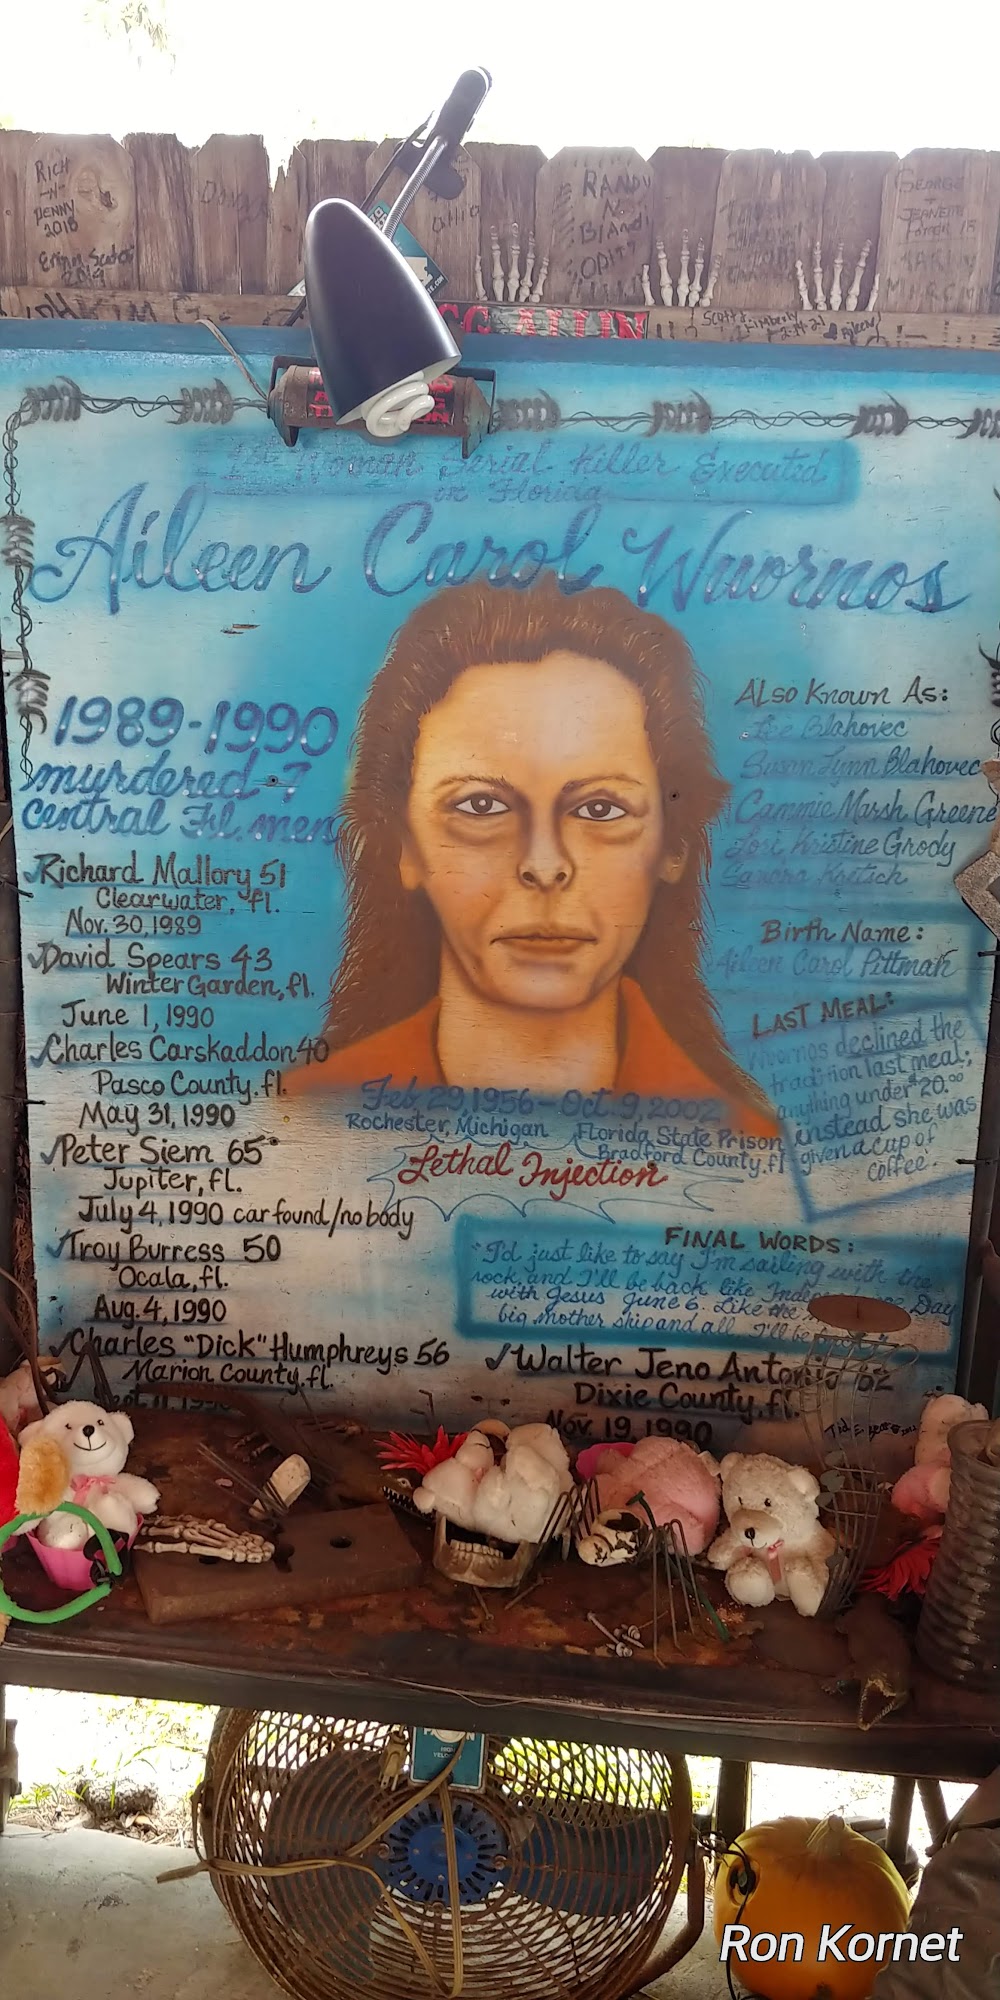 RICH
-N-
PENNY
2018
RANDY
N
GEORGE
+
JEANETTE
GG ALLIN
Scott &
Kimberly
2-14-21
1st Woman Serial Killer Executed
in Florida
Aileen Carol Wuornos
1989-1990
murdered 7
central Fl. men
Richard Mallory 51
Clearwater, fl.
Nov. 30, 1989
David Spears 43
Winter Garden, fl.
June 1, 1990
Charles Carskaddon 40
Pasco County, fl.
May 31, 1990
Peter Siem 65
Jupiter, fl.
July 4, 1990 car found/no body
Troy Burress 50
Ocala, fl.
Aug. 4, 1990
Charles "Dick" Humphreys 56
Marion County, fl.
Sept 11, 1990
Also Known As:
Lee Blahovec
Susan Lynn Blahovec
Cammie Marsh Greene
Lori Kristine Grody
Sandra Kretsch
Birth Name:
Aileen Carol Pittman
LAST MEAL:
Wuornos declined the
tradition last meal;
anything under $20.00
instead she was
given a cup of
coffee.
Feb. 29, 1956 - Oct. 9, 2002
Rochester, Michigan
Florida State Prison
Bradford County, fl
Lethal Injection
FINAL WORDS:
"I'd just like to say I'm sailing with the
rock, and I'll be back like Day
with Jesus June 6. Like the
big mother ship and all. I'll be
Walter Jeno Antonio 62
Dixie County, fl.
Nov. 19, 1990
Ron Kornet